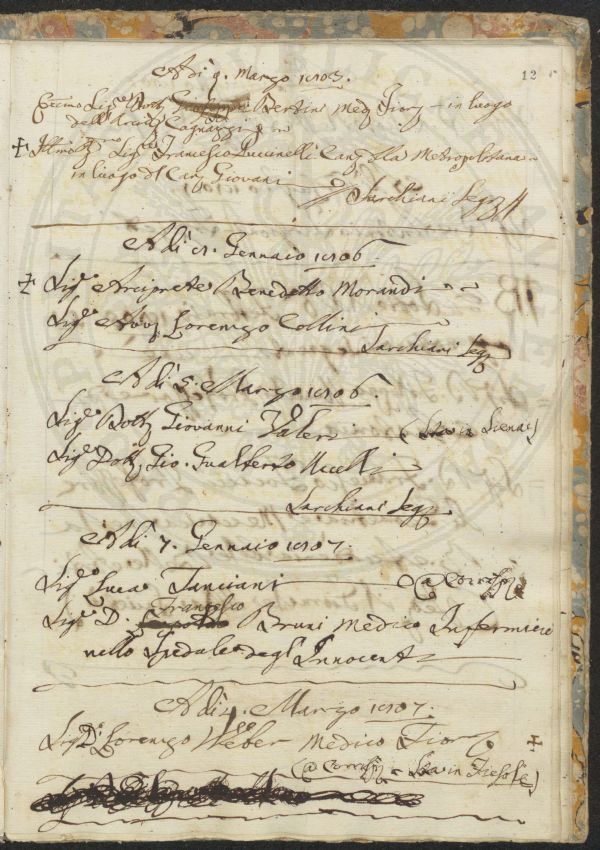 12
Adì 9. Marzo 1803.
Bertini Med. Fior. – in luogo
dell'
Sig.r Francesco Puccinelli Can. della Metropolitana
in luogo d. Can. Giovani
Sarchiani Seg.
Adì Gennaio 1806.
Sig.e Arciprete Benedetto Morandi
Sig.e Avv. Lorenzo Collini
Sarchiani Seg.
Adì 5. Marzo 1806.
Sig.e Dott. Giovanni Valeri (Sta in Siena)
Sig.e Dott. Gio. Gualberto Uccelli
Sarchiani Seg.
Adì 7. Gennaio 1807.
Sig.e Luca Tanciani
Francesco
Sig.e D. Bruni Medico Infermiere
nello Spedale degl'Innocenti
Adì Marzo 1807.
Sig. D. Lorenzo Weber Medico Fior.
(Sta in Fiesole)